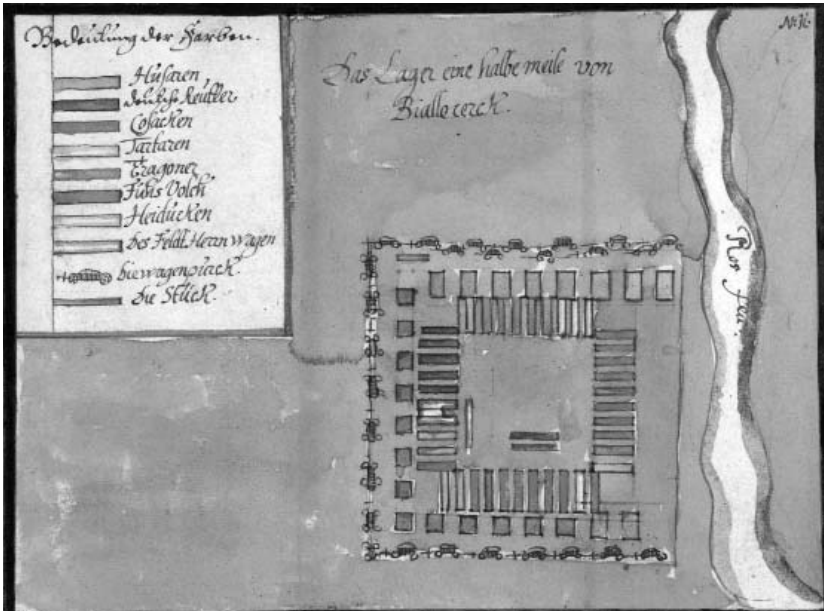 Bedeutung der Farben.
Husaren
deutsche Reutter
Cosacken
Tartaren
Tragoner
Fuhs Volck
Heiducken
des Feldt Herrn wagen
die wagenpurck.
die Stück.
Das Lager eine halbe meile von
Biallocerck.
Ros flu.